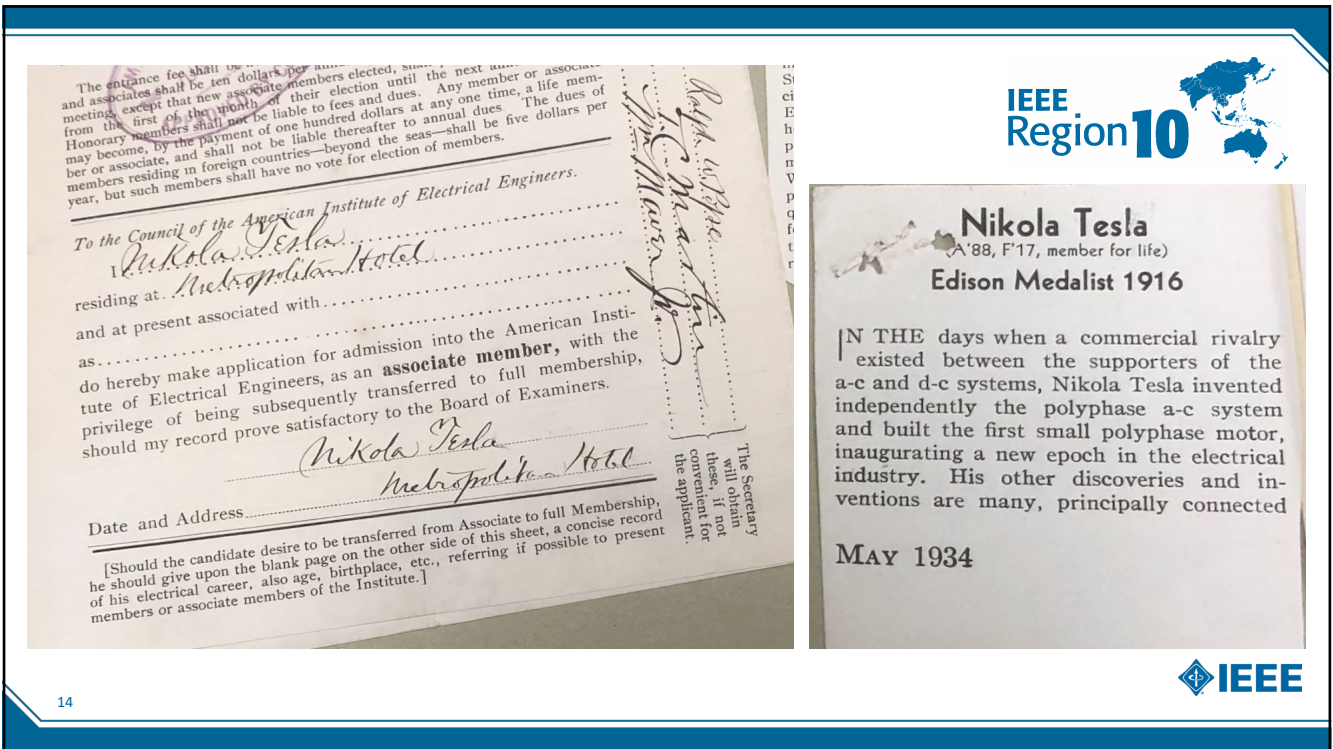 The entrance fee shall be
and associates shall be ten dollars per
meeting, except that new associate members elected,
from the first of the month of their election until the next
Honorary members shall not be liable to fees and dues. Any member or associate
may become, by the payment of one hundred dollars at any one time, a life mem-
ber or associate, and shall not be liable thereafter to annual dues. The dues of
members residing in foreign countries—beyond the seas—shall be five dollars per
year, but such members shall have no vote for election of members.
To the Council of the American Institute of Electrical Engineers.
I Nikola Tesla
residing at Metropolitan Hotel
and at present associated with
as
do hereby make application for admission into the American Insti-
tute of Electrical Engineers, as an associate member, with the
privilege of being subsequently transferred to full membership,
should my record prove satisfactory to the Board of Examiners.
Nikola Tesla
Metropolitan Hotel
Date and Address
[Should the candidate desire to be transferred from Associate to full Membership,
he should give upon the blank page on the other side of this sheet, a concise record
of his electrical career, also age, birthplace, etc., referring if possible to present
members or associate members of the Institute.]
Ralph W. Pope
T. C. Martin
Wm Maver Jr
The Secretary
will obtain
these, if not
convenient for
the applicant.
IEEE
Region 10
Nikola Tesla
(A'88, F'17, member for life)
Edison Medalist 1916
IN THE days when a commercial rivalry
existed between the supporters of the
a-c and d-c systems, Nikola Tesla invented
independently the polyphase a-c system
and built the first small polyphase motor,
inaugurating a new epoch in the electrical
industry. His other discoveries and in-
ventions are many, principally connected
MAY 1934
IEEE
14